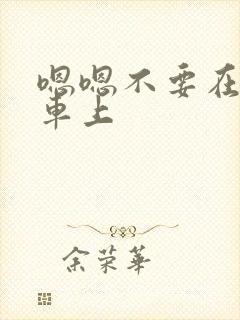 嗯嗯不要在
車上
余荣華